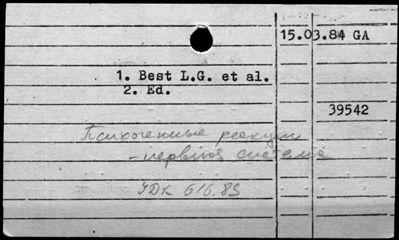 15.03.84 GA
1. Best L.G. et al.
2. Ed.
39542
Психогенные реакции
-нервная система
УДК 616.89